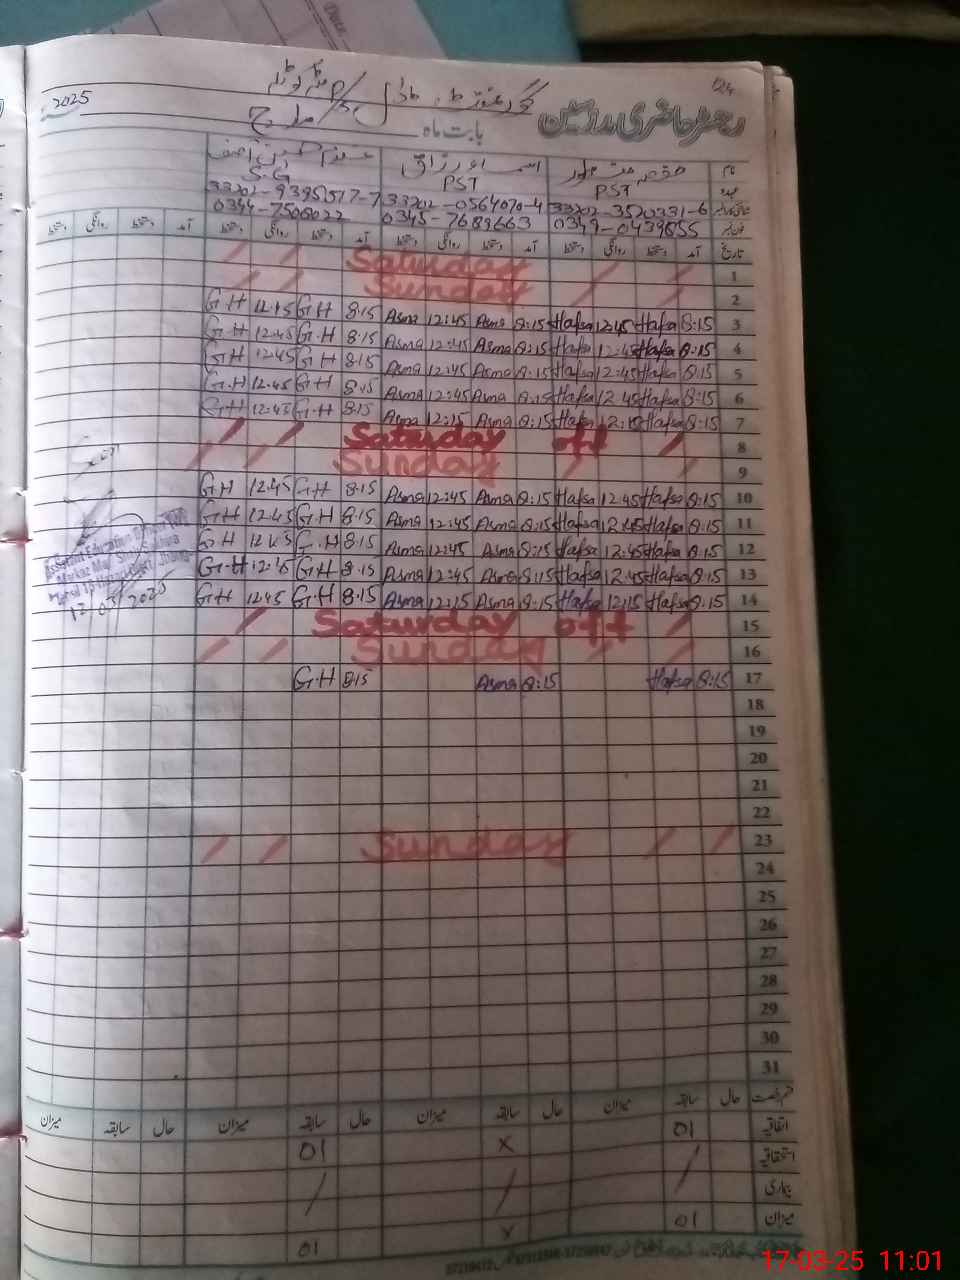 2025
رجسٹر حاضری مدرسین
بابت ماہ مارچ
نام
عہدہ PST PST S.G
33202-3520331-6 33202-0564070-4 33202-9395517-7
0349-0439655 0345-7689663 0344-7506022
تاریخ آمد دستخط روانگی دستخط آمد دستخط روانگی دستخط آمد دستخط روانگی دستخط آمد دستخط روانگی دستخط
1 Saturday
2 Sunday
3 8:15 Hafsa 12:45 Hafsa 8:15 Asma 12:45 Asma 8.15 G.H 12.45 G.H
4 8:15 Hafsa 12:45 Hafsa 8:15 Asma 12:45 Asma 8.15 G.H 12.45 G.H
5 8:15 Hafsa 12:45 Hafsa 8:15 Asma 12:45 Asma 8.15 G.H 12.45 G.H
6 8:15 Hafsa 12.45 Hafsa 8:15 Asma 12:45 Asma 8.15 G.H 12.45 G.H
7 8:15 Hafsa 12:15 Hafsa 8:15 Asma 12:15 Asma 8.15 G.H 12.45 G.H
8 Saturday off
9 Sunday
10 8:15 Hafsa 12.45 Hafsa 8:15 Asma 12:45 Asma 8.15 G.H 12.45 G.H
11 8:15 Hafsa 12.45 Hafsa 8:15 Asma 12:45 Asma 8.15 G.H 12.45 G.H
12 8:15 Hafsa 12:45 Hafsa 8:15 Asma 12:45 Asma 8.15 G.H 12.45 G.H
13 8:15 Hafsa 12.45 Hafsa 8:15 Asma 12:45 Asma 8.15 G.H G.H
14 8:15 Hafsa 12:15 Hafsa 8:15 Asma 12:15 Asma 8.15 G.H 12.45 G.H
Assistant Education
12/03/2025
15 Saturday off
16 Sunday
17 8:15 Hafsa 8:15 Asma 8.15 G.H
18
19
20
21
22
23 Sunday
24
25
26
27
28
29
30
31
قسم رخصت حال سابقہ میزان حال سابقہ میزان حال سابقہ میزان حال سابقہ میزان
اتفاقیہ 01 x 01
استحقاقیہ / / /
بیماری
میزان 01 x 01
17-03-25 11:01